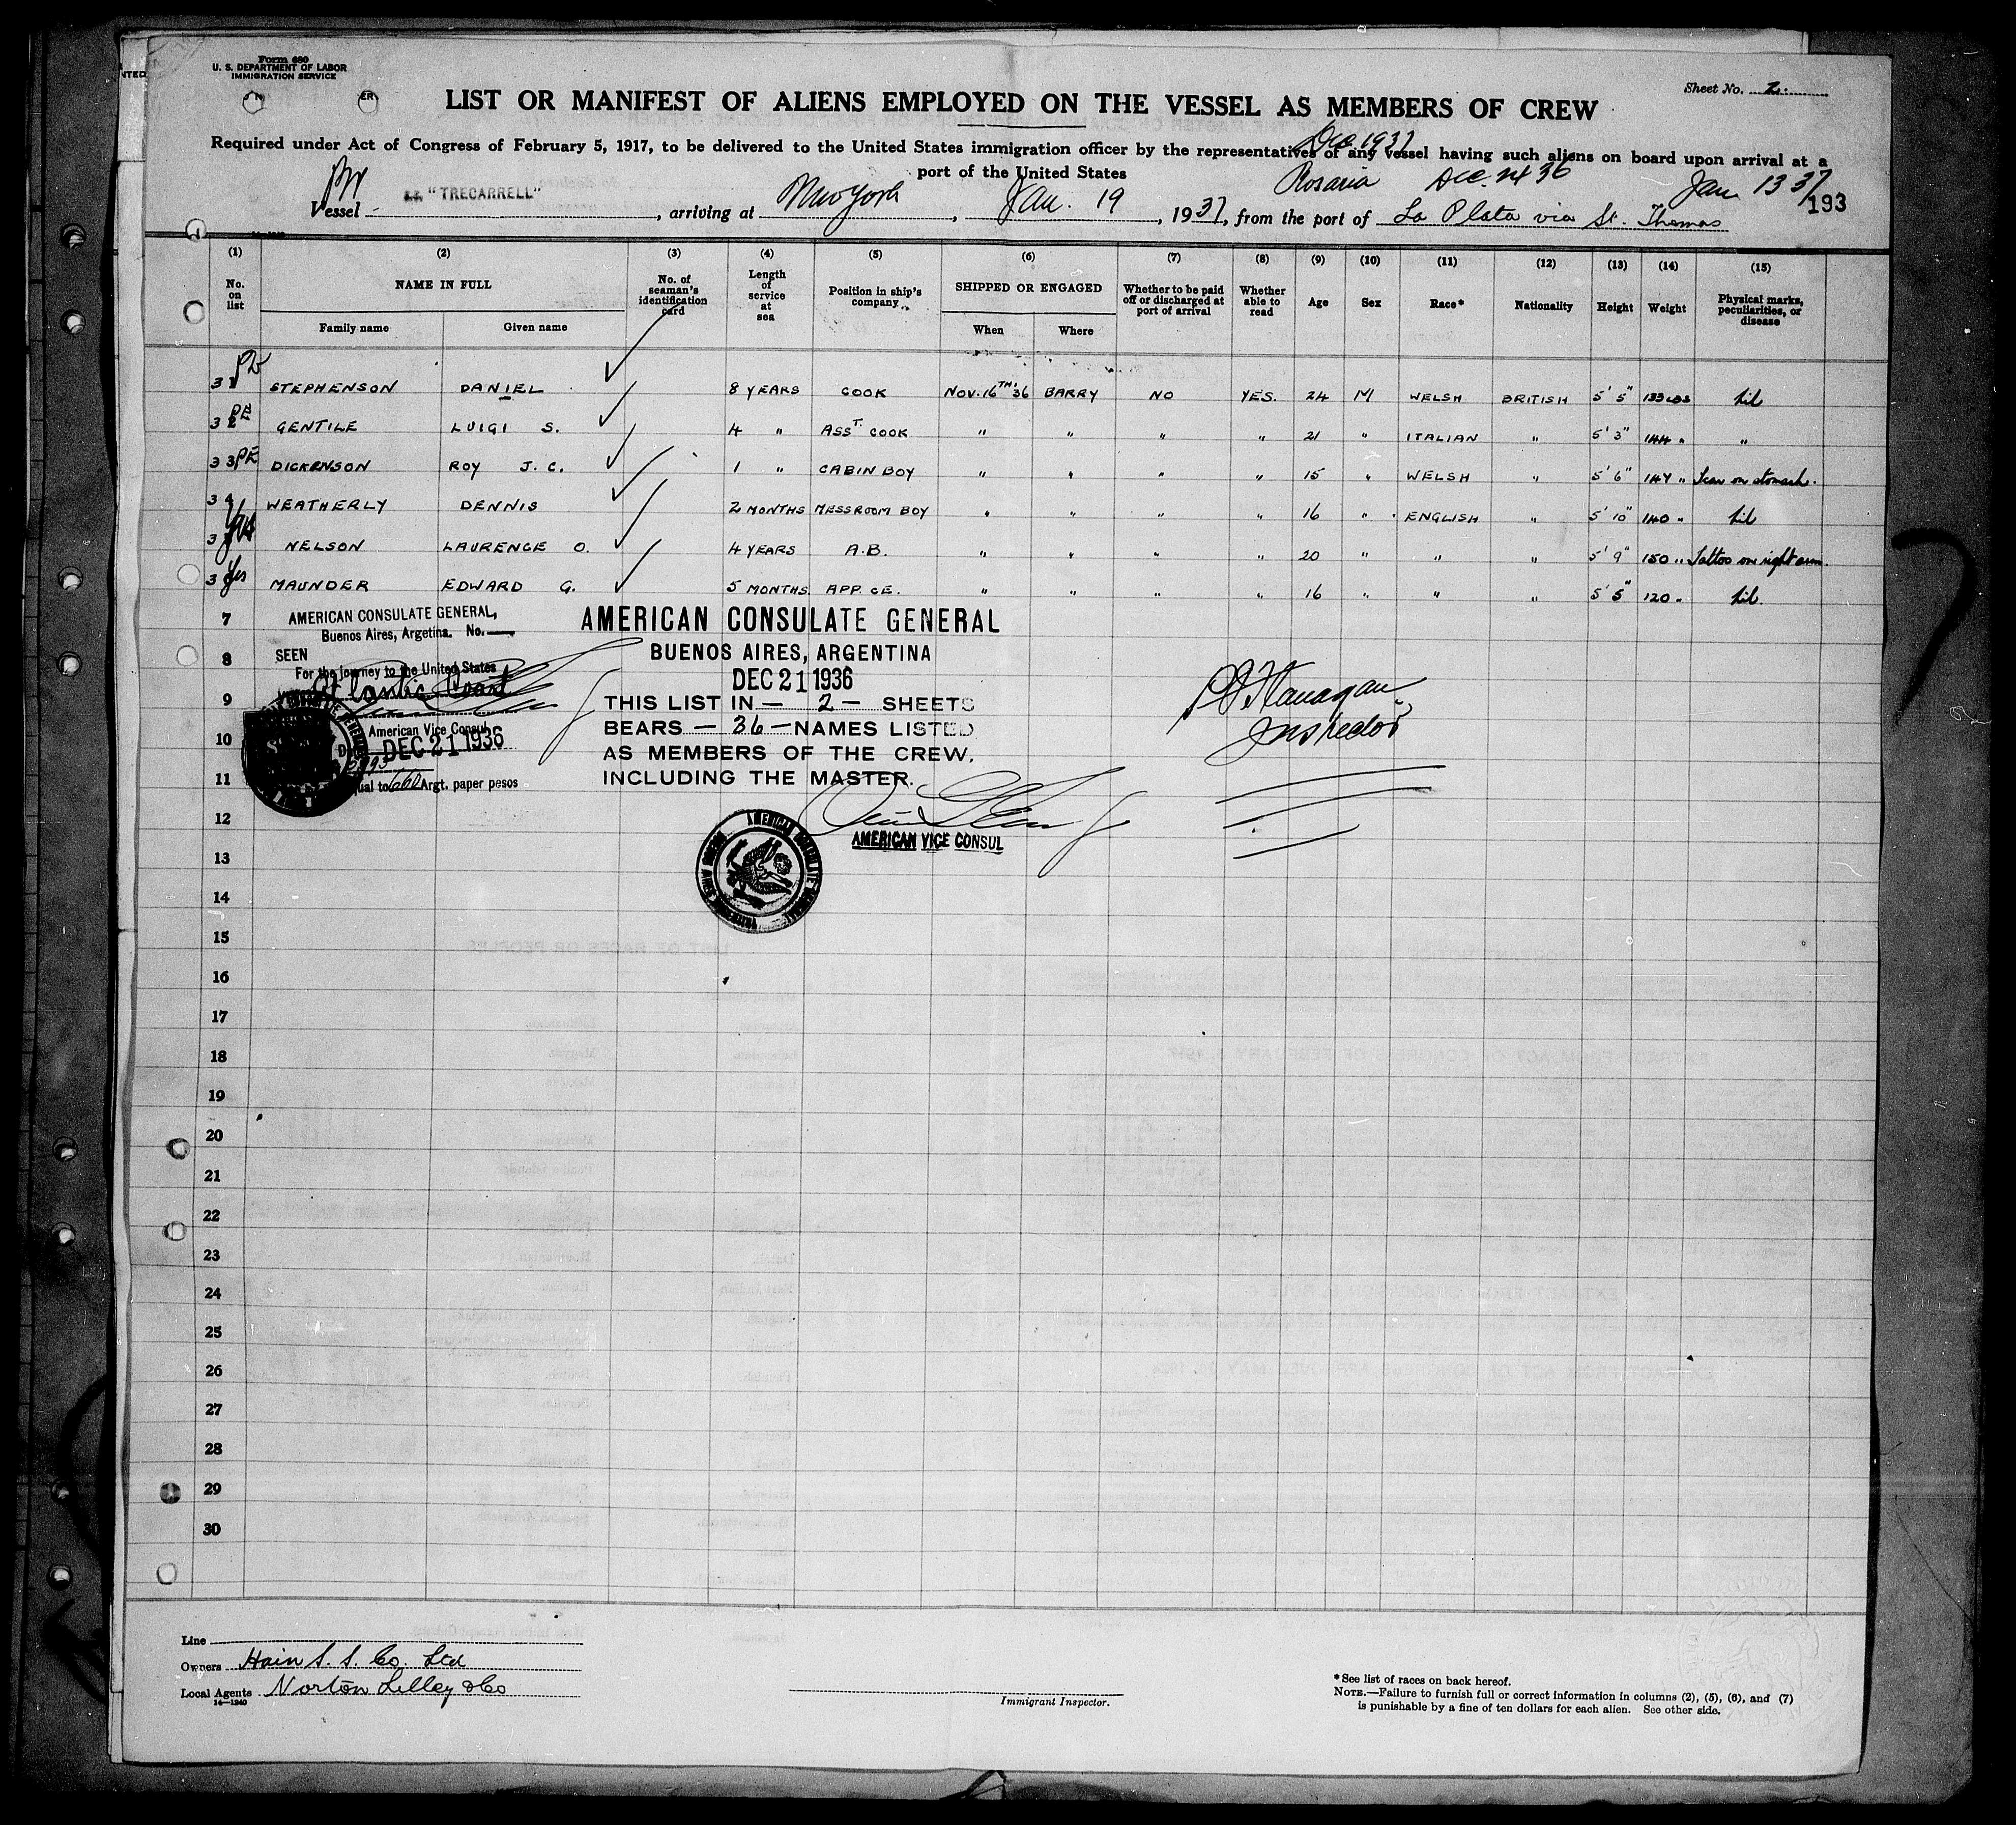 Form 680
U. S. DEPARTMENT OF LABOR
IMMIGRATION SERVICE
Sheet No. 2.
LIST OR MANIFEST OF ALIENS EMPLOYED ON THE VESSEL AS MEMBERS OF CREW
Dec 1937
Required under Act of Congress of February 5, 1917, to be delivered to the United States immigration officer by the representatives of any vessel having such aliens on board upon arrival at a
port of the United States
Br Rosaria Dec. 24 36 Jan 13 37
Vessel S.S. "TRECARRELL", arriving at New York, Jan. 19, 1937, from the port of La Plata via St. Thomas 193
(1) (2) (3) (4) (5) (6) (7) (8) (9) (10) (11) (12) (13) (14) (15)
No. on list NAME IN FULL Family name Given name No. of seaman's identification card Length of service at sea Position in ship's company SHIPPED OR ENGAGED When Where Whether to be paid off or discharged at port of arrival Whether able to read Age Sex Race* Nationality Height Weight Physical marks, peculiarities, or disease
31 STEPHENSON DANIEL 8 YEARS COOK NOV. 16TH 36 BARRY NO YES. 24 M WELSH BRITISH 5' 5" 133 LBS Nil
32 GENTILE LUIGI S. 4 " ASST. COOK " " " " 21 " ITALIAN " 5' 3" 144 " "
33 DICKENSON ROY J. C. 1 " CABIN BOY " " " " 15 " WELSH " 5' 6" 147 " Scar on stomach.
34 WEATHERLY DENNIS 2 MONTHS MESSROOM BOY " " " " 16 " ENGLISH " 5' 10" 140 " Nil
35 NELSON LAURENCE O. 4 YEARS A.B. " " " " 20 " " " 5' 9" 150 " Tattoo on right arm.
36 MAUNDER EDWARD G. 5 MONTHS APP. CE. " " " " 16 " " " 5' 5" 120 " Nil.
7
8
9
10
11
12
13
14
15
16
17
18
19
20
21
22
23
24
25
26
27
28
29
30
AMERICAN CONSULATE GENERAL,
Buenos Aires, Argetina. No.
SEEN
For the journey to the United States
Atlantic Coast
American Vice Consul
DEC 21 1936
equal to 6.60 Argt. paper pesos
AMERICAN CONSULATE GENERAL
BUENOS AIRES, ARGENTINA
DEC 21 1936
THIS LIST IN — 2 — SHEETS
BEARS — 36 — NAMES LISTED
AS MEMBERS OF THE CREW,
INCLUDING THE MASTER.
AMERICAN VICE CONSUL
AMERICAN CONSULATE GENERAL BUENOS AIRES ARGENTINA
Flanagan
Inspector
Line
Owners Hain S. S. Co. Ltd
Local Agents Norton Lilley & Co
14—1240
Immigrant Inspector.
*See list of races on back hereof.
NOTE.—Failure to furnish full or correct information in columns (2), (5), (6), and (7)
is punishable by a fine of ten dollars for each alien. See other side.